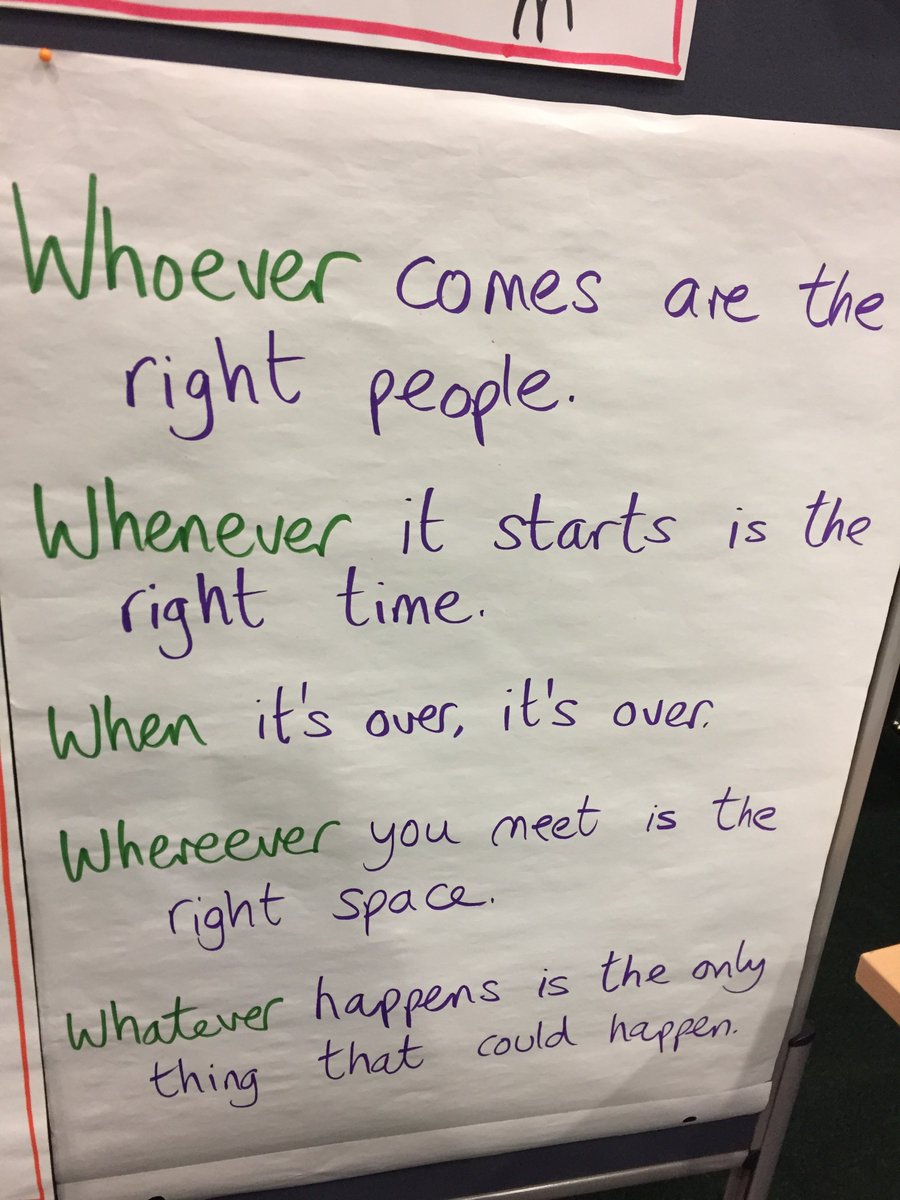 Whoever comes are the
right people.
Whenever it starts is the
right time.
When it's over, it's over.
Whereever you meet is the
right space.
Whatever happens is the only
thing that could happen.